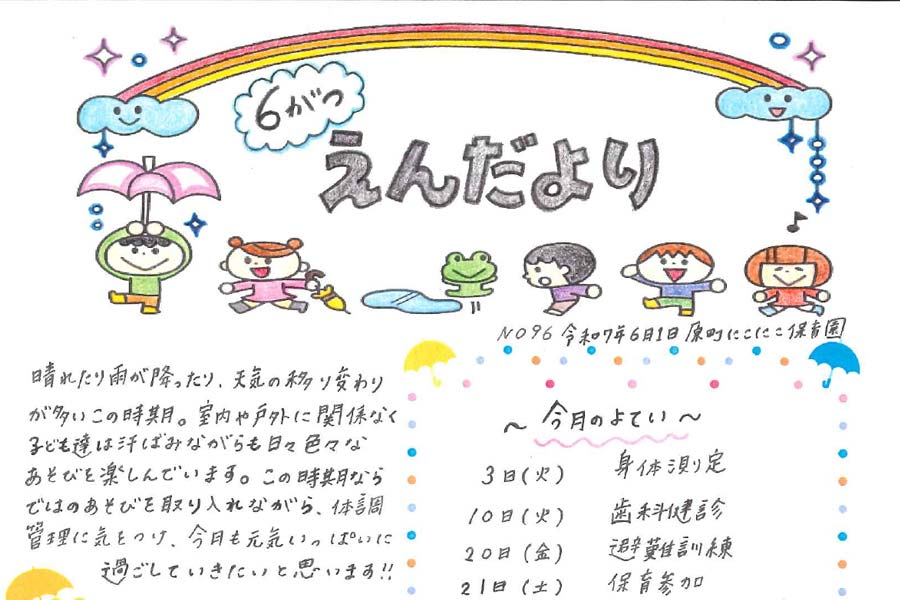 6がつ
えんだより
NO96 令和7年6月1日 原町にこにこ保育園
晴れたり雨が降ったり、天気の移り変わり
が多いこの時期。室内や戸外に関係なく
子ども達は汗ばみながらも日々色々な
あそびを楽しんでいます。この時期なら
ではのあそびを取り入れながら、体調
管理に気をつけ、今月も元気いっぱいに
過ごしていきたいと思います!!
～ 今月のよてい ～
3日(火) 身体測定
10日(火) 歯科健診
20日(金) 避難訓練
21日(土) 保育参加